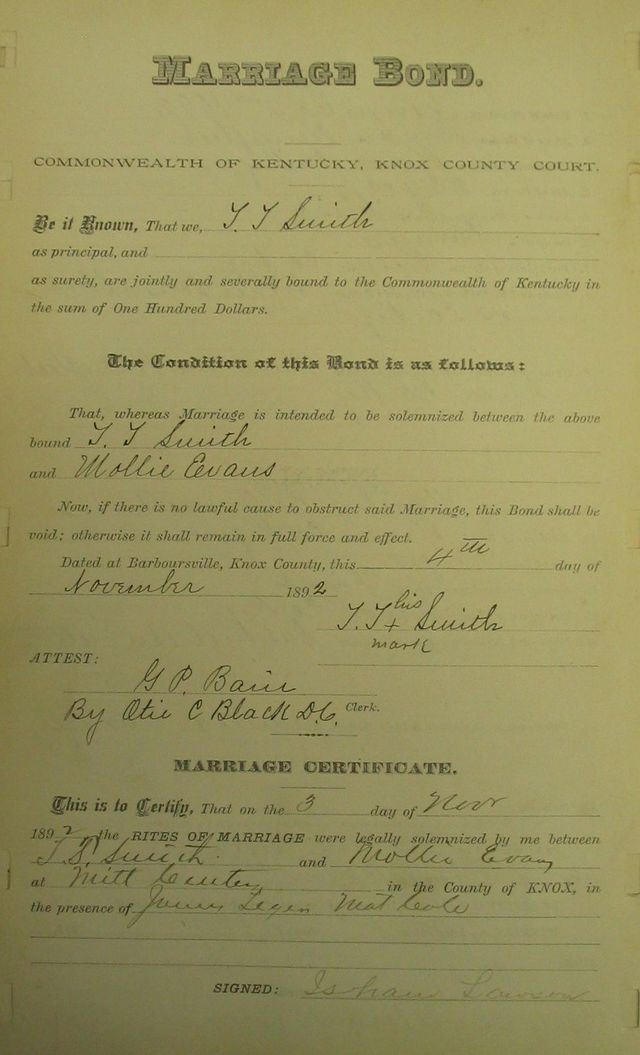 MARRIAGE BOND.
COMMONWEALTH OF KENTUCKY, KNOX COUNTY COURT.
Be it Known, That we, T. T Smith
as principal, and
as surety, are jointly and severally bound to the Commonwealth of Kentucky in
the sum of One Hundred Dollars.
The Condition of this Bond is as follows:
That, whereas Marriage is intended to be solemnized between the above
bound T. T Smith
and Mollie Eevans
Now, if there is no lawful cause to obstruct said Marriage, this Bond shall be
void; otherwise it shall remain in full force and effect.
Dated at Barboursville, Knox County, this 4th day of
November 1892
T. T his + Smith
mark
ATTEST:
G P. Bain
By Otie C Black D.C. Clerk.
MARRIAGE CERTIFICATE.
This is to Certify, That on the 3 day of Nov
1892, the RITES OF MARRIAGE were legally solemnized by me between
Smith and Mollie Evans
at in the County of KNOX, in
the presence of
SIGNED: Isham Lawson